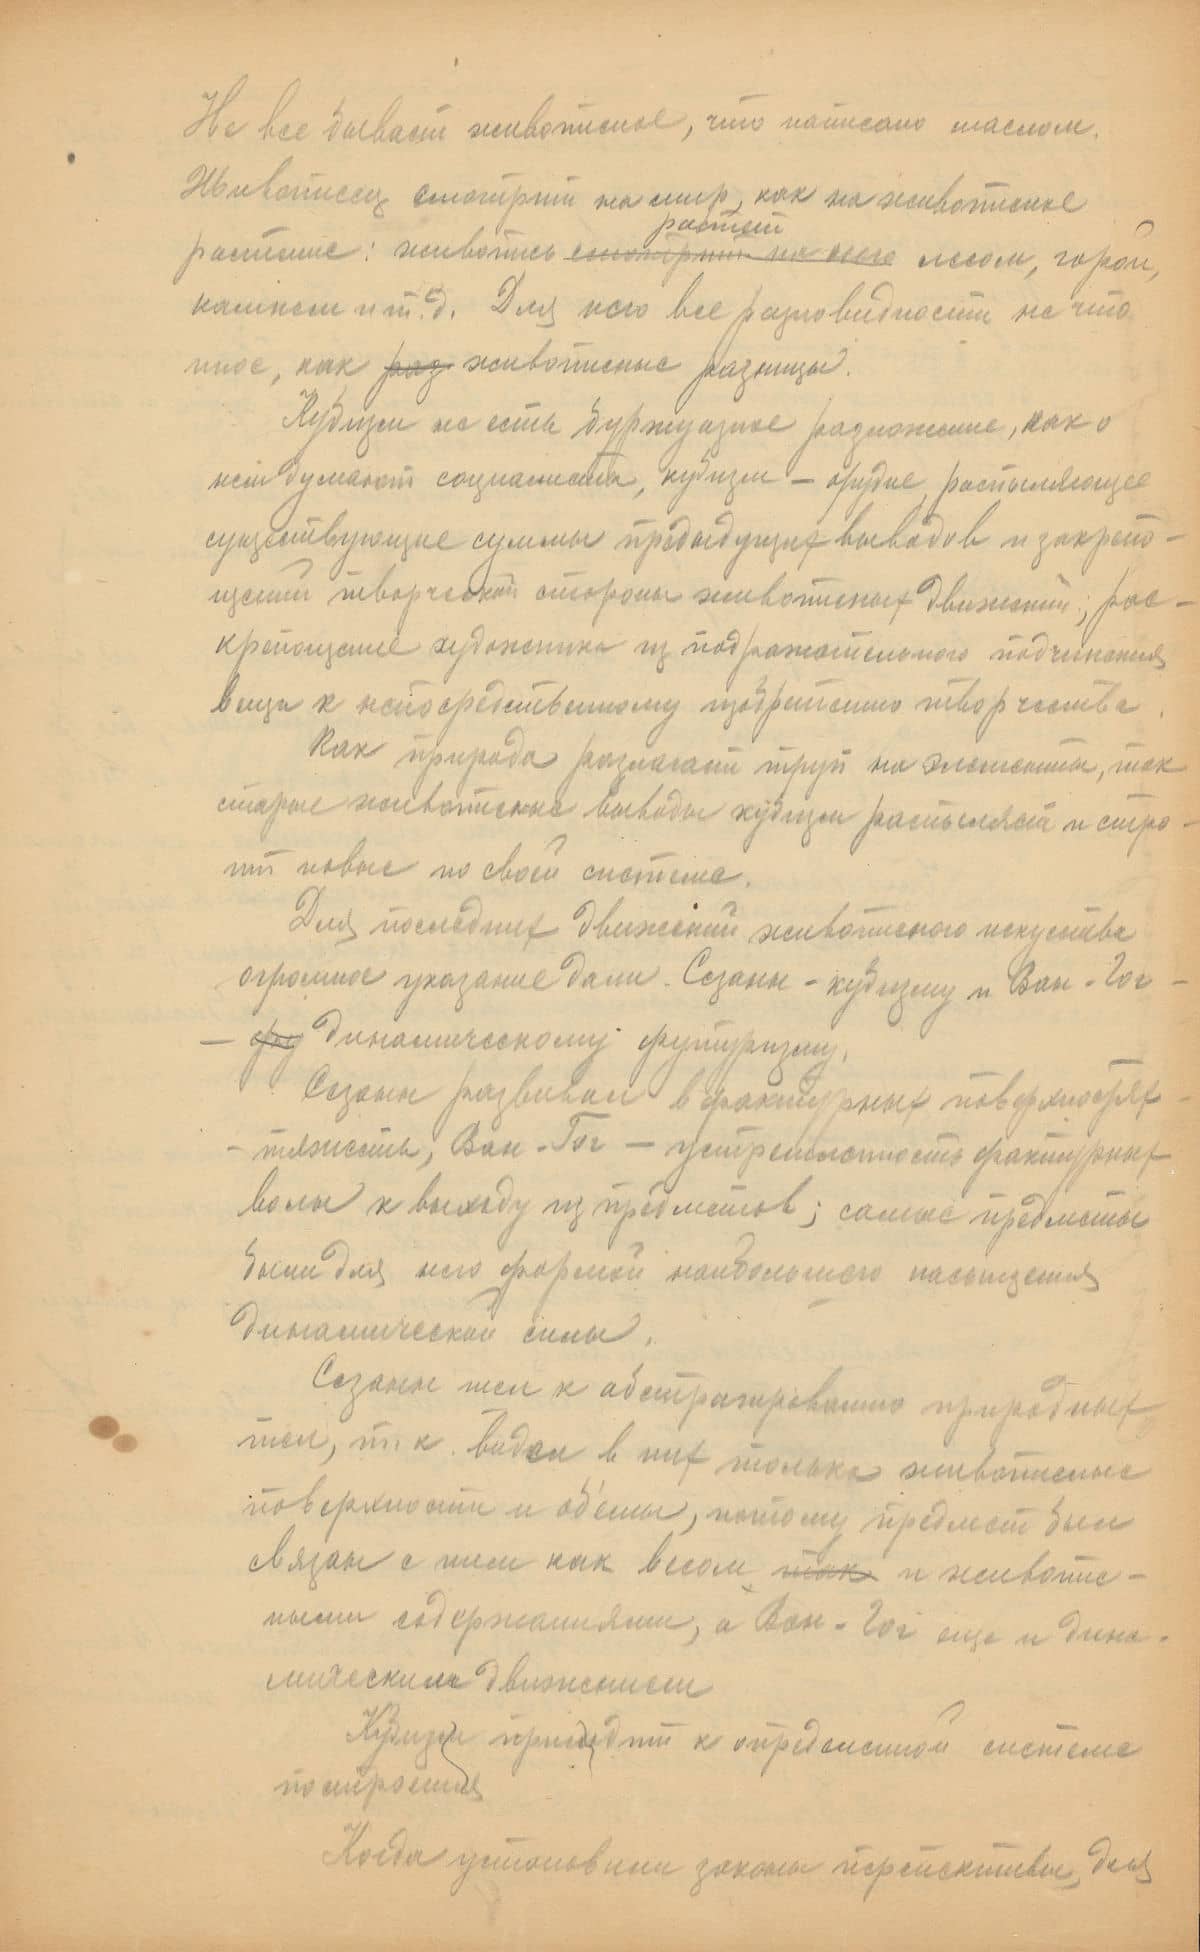 Не все бывает живописное, что написано маслом.
Живописец смотрит на мир, как на живописное
растет
растение: живопись смотрит на него лесом, горой,
камнем и т.д. Для него все разновидности не что
иное, как раз живописные разницы.
Кубизм не есть буржуазное разложение, как о
нем думают социалисты, кубизм — орудие, распыляющее
существующие суммы предыдущих выводов и закрепо-
щений творческой стороны живописных движений; рас-
крепощение художника из подражательного подчинения
вещи к непосредственному изобретению творчества.
Как природа разлагает труп на элементы, так
старые живописные выводы кубизм распыляет и стро-
ит новые по своей системе.
Для последних движений живописного искуства
огромное указание дали. Сезанн - кубизму и Ван-Гог -
— фу динамическому футуризму.
Сезанн развивал в фактурных поверхностях -
- тяжесть, Ван-Гог — устремленность фактурных
волн к выходу из предметов; самые предметы
были для него формой наибольшего насыщения
динамической силы.
Сезанн шел к абстрагированию природных
тел, т.к. видел в них только живописные
поверхности и об'емы, потому предмет был
связан с ним как весом, так и живопис-
ными содержаниями, а Ван-Гог еще и дина-
мическим движением
Кубизм приводит к определенной системе
построения
Когда установили законы перспективы, для